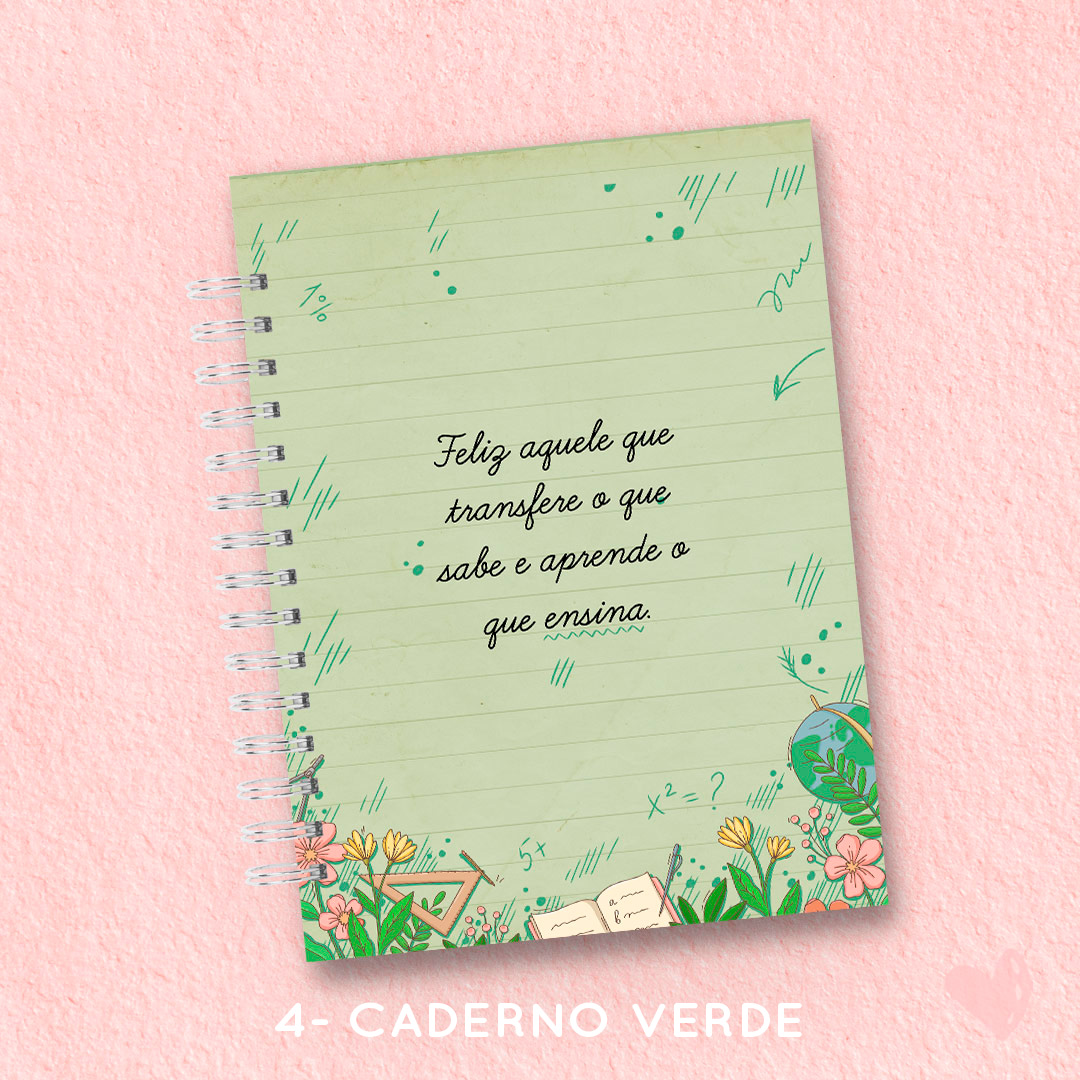 1%
Feliz aquele que
transfere o que
sabe e aprende o
que ensina.
x² = ?
5+
a
b
4- CADERNO VERDE